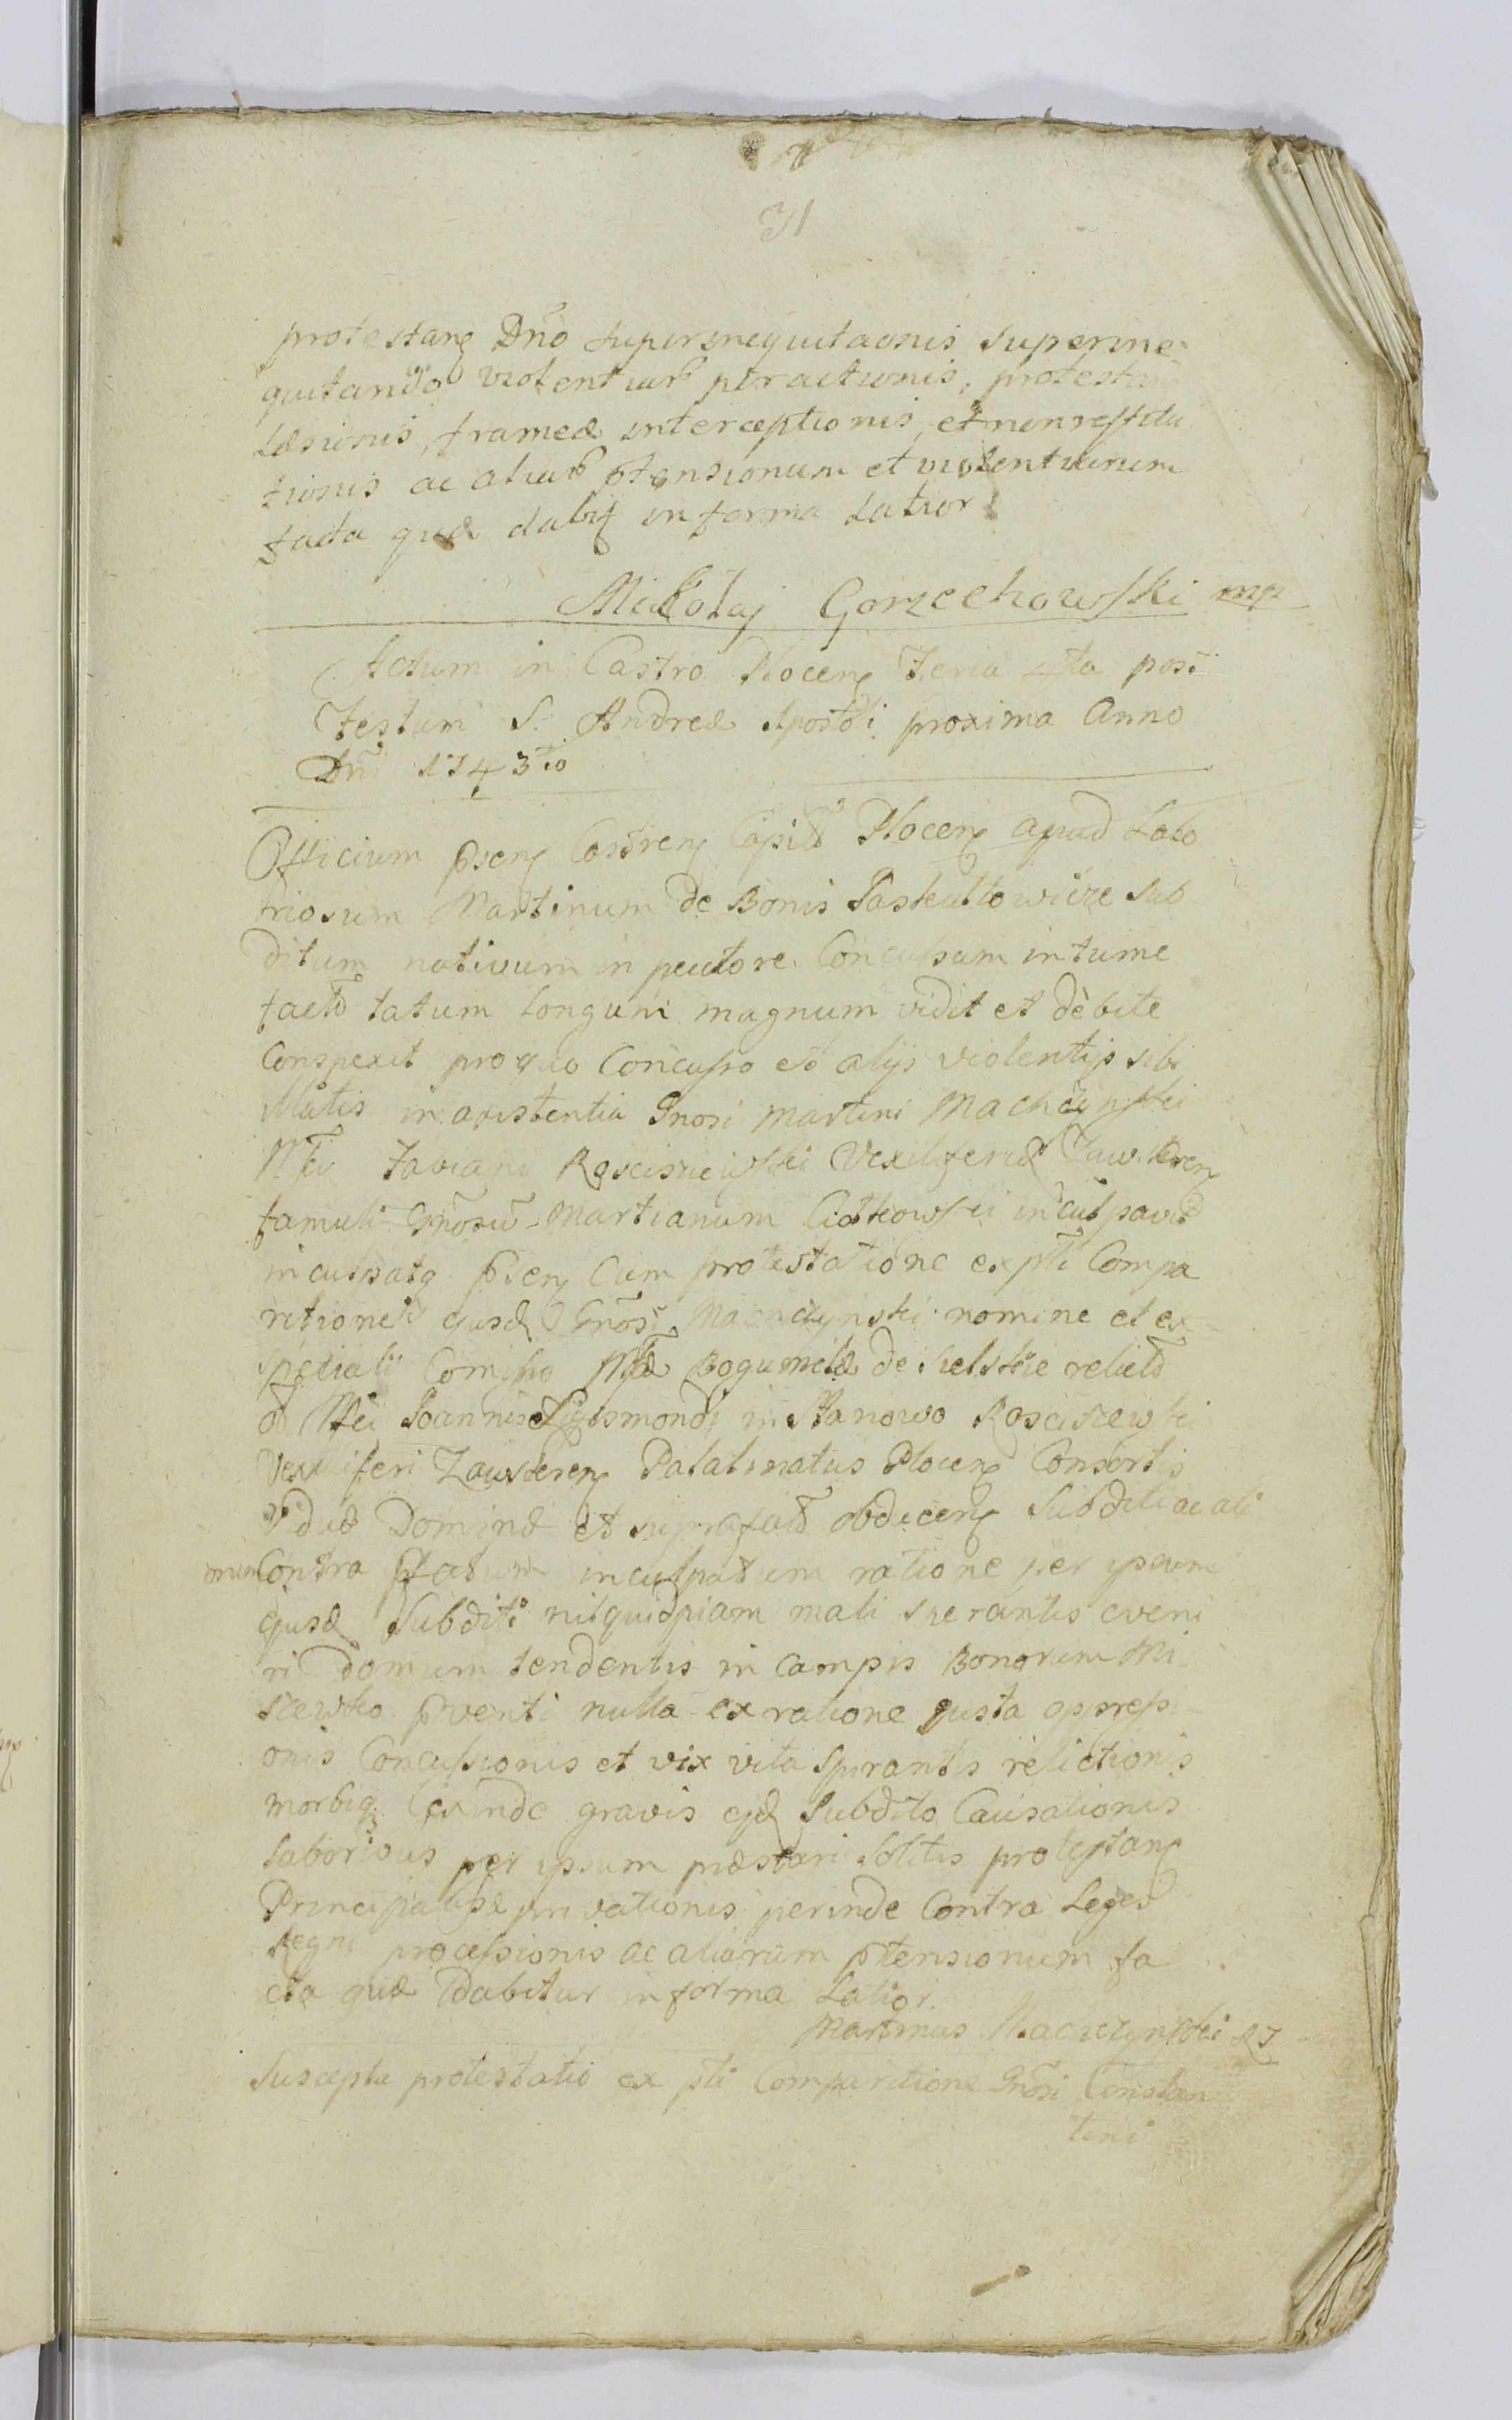 71
protestanę Dño superinequitaonis superine
quitando violentiarũ peractionis, protestan
Læsionis, frameæ interceptionis, et non restitu
tionis ac aliarũ ptensionum et violentiarum
facta quæ dabit in forma Latior
Mikołaj Gorzechowski mp
Actum in Castro Plocenę Feria 4ta post
Festum S. Andreæ Apostoli proxima Anno
Dñi 1743tio
Officium psenę Castrenę Capitlē Plocenę apud Labo
riosum Martinum de Bonis subditum
ditum nativum in pectore Concussam intume
factō latum longum magnum vidit et debite
Conspexit pro quo Concusso et alijs violentijs sibi
illatis in assistentia Gnosi Martini Machczynski
Mci Fabiani Rosciszewski Vexiliferidæ Zawkrenę
famuli Gnosũ Martianum Ciotkowski inculpavit
inculpatq psenę Cum protestatione ex pti Compa
ritione ejusdę Gnosi Machczynski nomine et ex
speciali Comisso Mcæ Bogumilæ de relictō
õ Mci Joannis Sigismondi in Stanowo Rosciszewski
Vexilliferi Zawkrenę Palatinatus Plocenę Consortis
Viduæ Dominæ et suprafatō obducenę Subditi ac ali
orum Contra ptatum inculpatum ratione per ipsum
ejusdę Subditi nil quidpiam mali sperantis eveni
ri domum tendentis in Campis Bonorum Mi
szewko pventi nulla ex ratione justa oppressi
onis Concussionis et vix vita spirantis relictionis
morbiq exinde gravis ejdę Subdito Causationis
laboribus per ipsum præstari solitis protestanę
Principalisq privationis perinde Contra Leges
Regni processionis ac aliarum ptensionum fa
cta quæ dabitur in forma Latior.
Martinus Machczynski
Suscepta protestatio ex pti Comparitione Gnosi Constan
tini